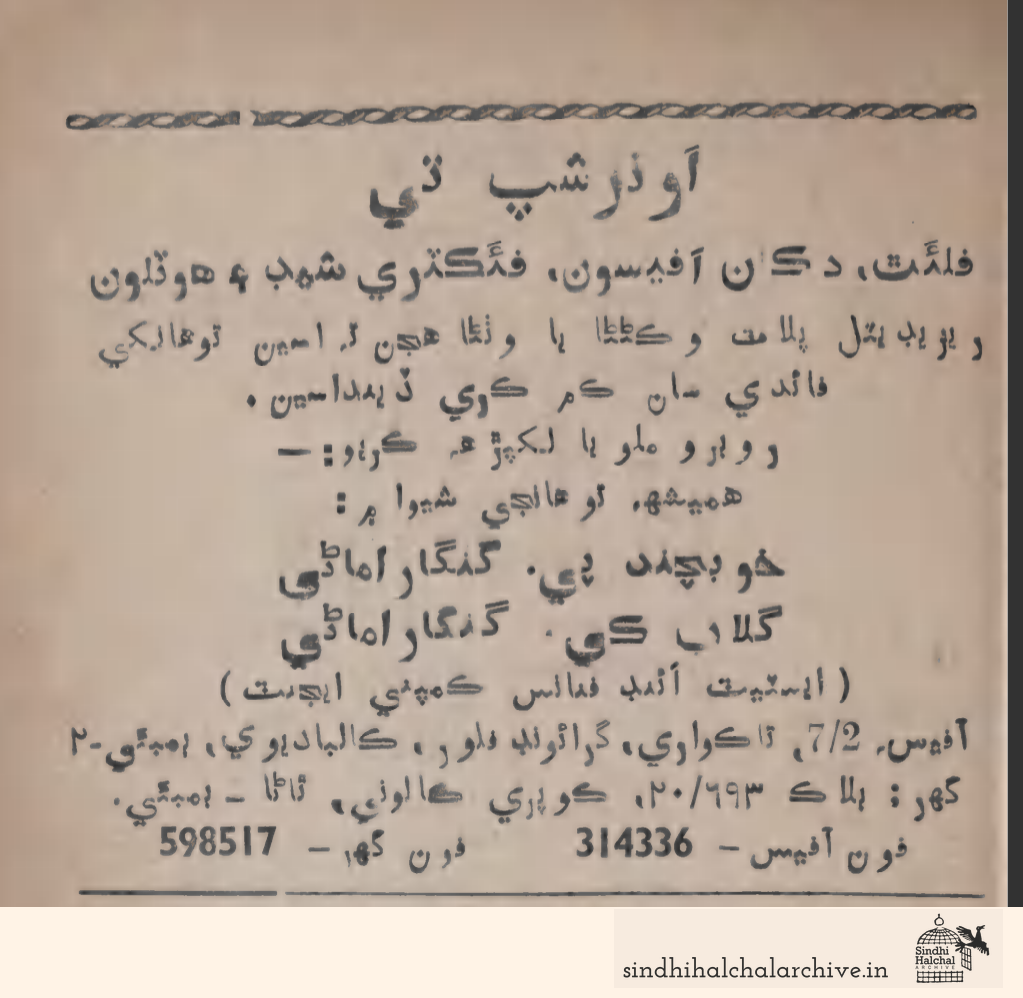 اَونرشپ تي
فلئٽ، دڪان آفيسون، فئڪٽري شيڊ ۽ هوٽلون
پلاٽ وڪڻڻا يا وٺڻا هجن ته اسين توهانکي
فائدي سان ڪم ڪري ڏينداسين.
روبرو ملو يا لکپڙهه ڪريو: —
هميشه توهانجي شيوا ۾:
خوبچند پي. گنگاراماڻي
گلاب ڪي. گنگاراماڻي
(ايسٽيٽ ائنڊ فنانس ڪمپني ايجنٽ)
آفيس 7/2, ٺاڪواري، گرائونڊ فلور، ڪالباديوي، بمبئي-۲
گهر: بلاڪ ۲۰/۶۹۳، ڪوپري ڪالوني، ٿاڻا - بمبئي.
فون آفيس - 314336 فون گهر - 598517
sindhihalchalarchive.in
Sindhi
Halchal
ARCHIVE